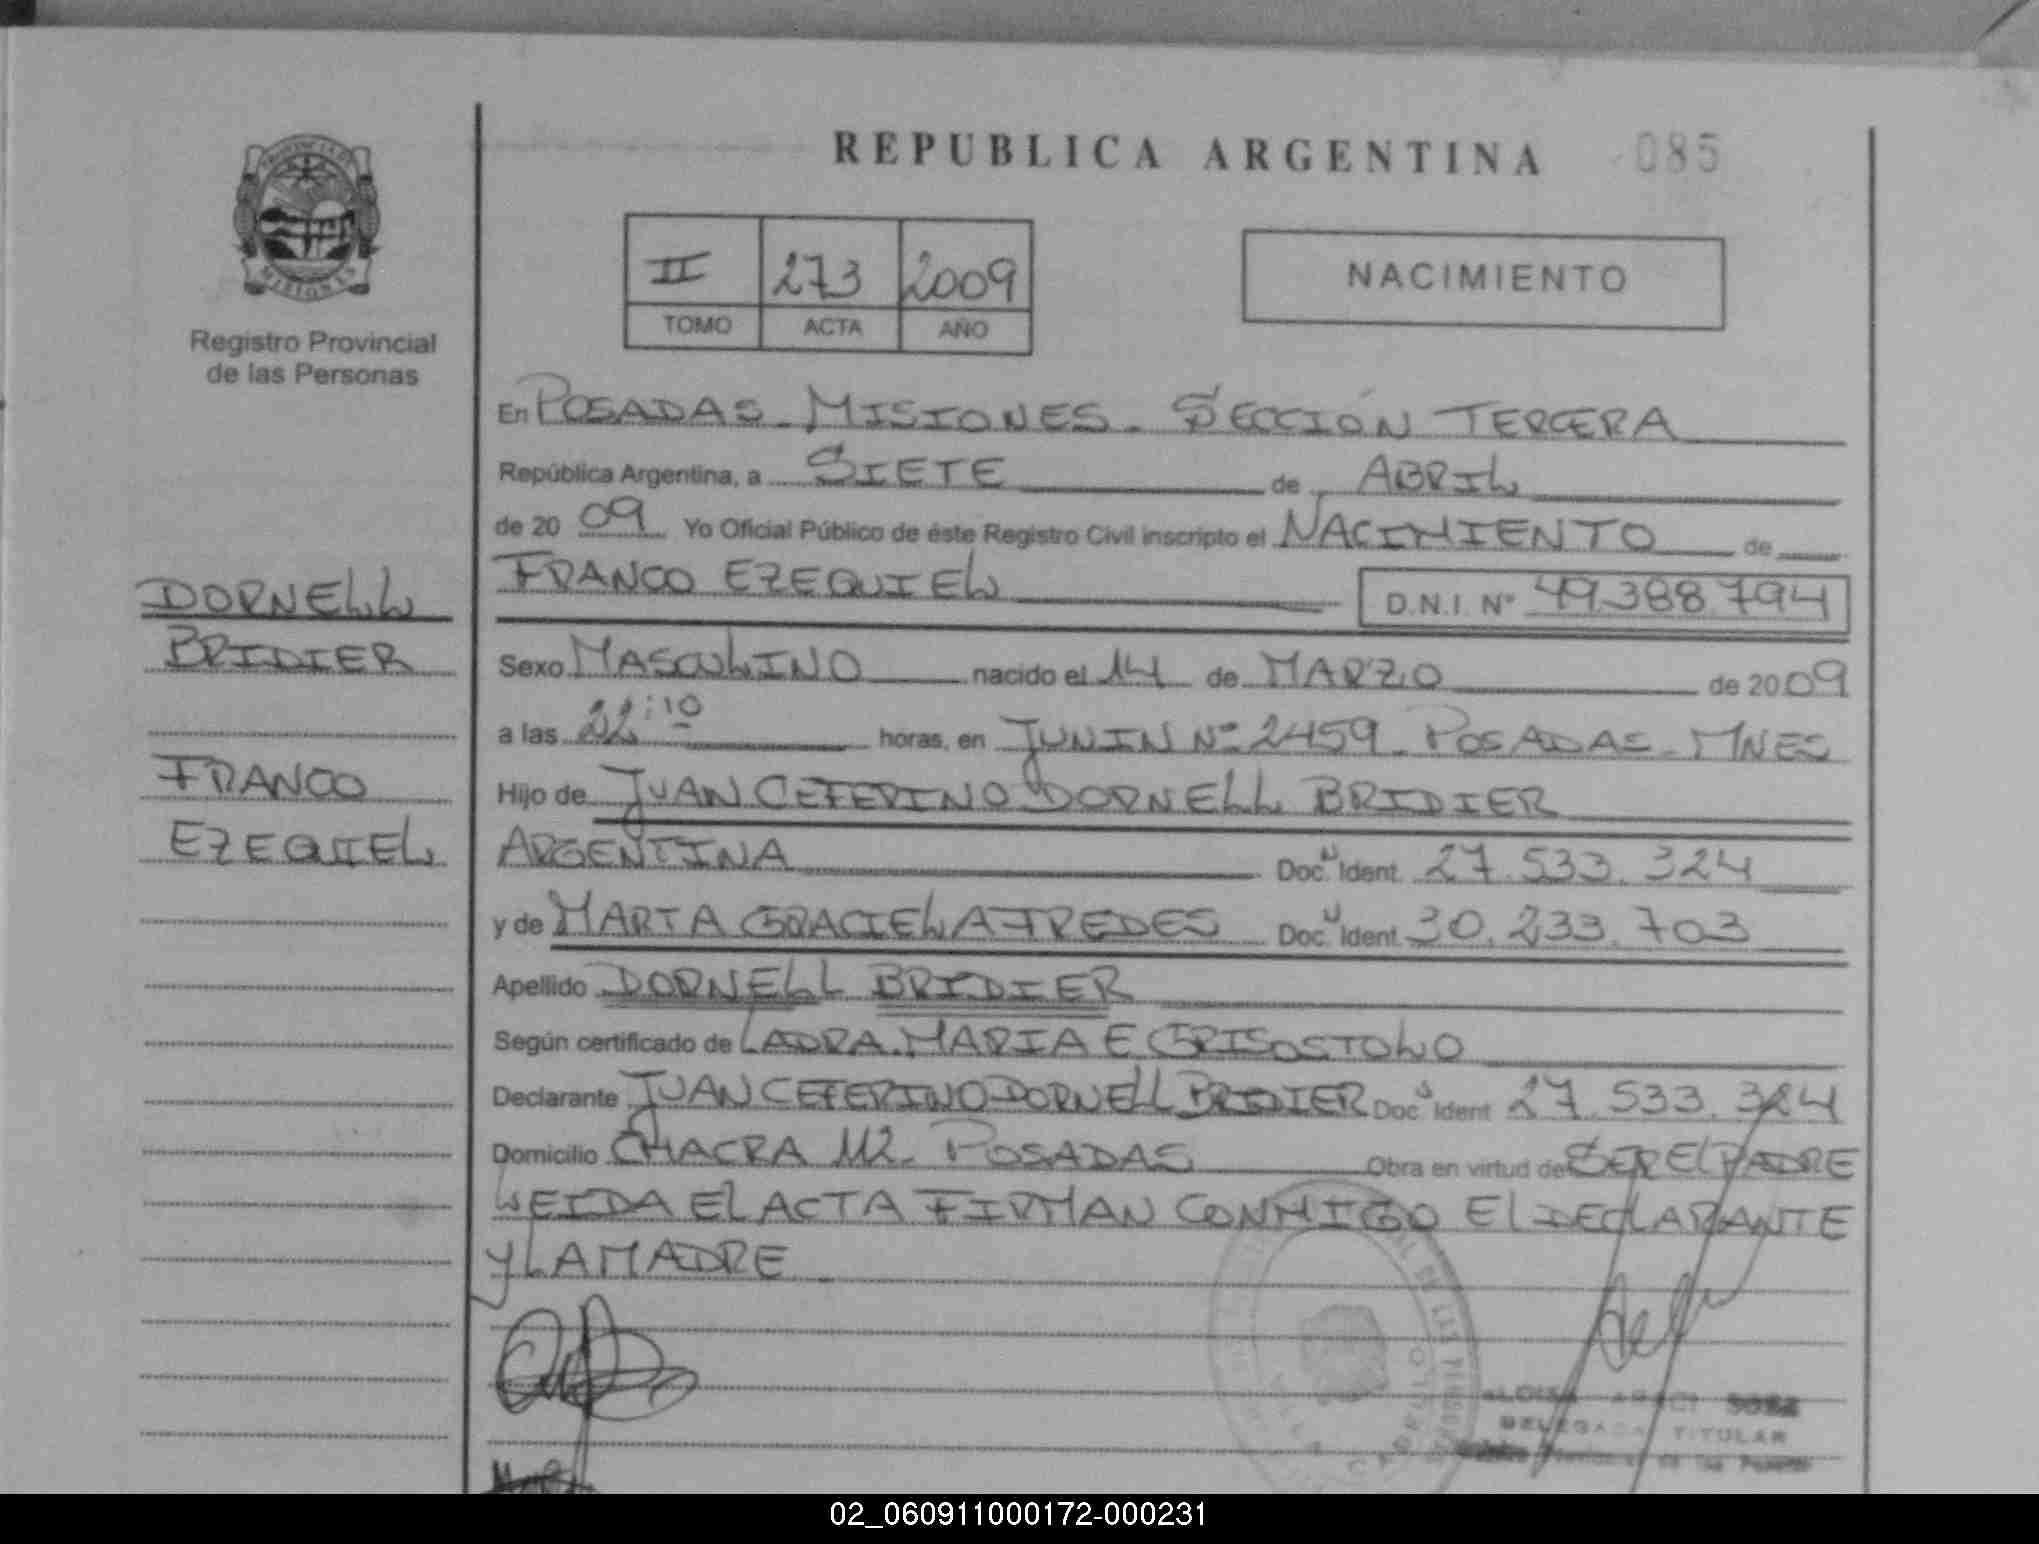 REPUBLICA ARGENTINA 085
II 273 2009
TOMO ACTA AÑO
NACIMIENTO
Registro Provincial
de las Personas
DORNELL
BRIDIER
FRANCO
EZEQUIEL
En POSADAS - MISIONES - SECCIÓN TERCERA
República Argentina, a SIETE de ABRIL
de 20 09 Yo Oficial Público de éste Registro Civil inscripto el NACIMIENTO de
FRANCO EZEQUIEL D.N.I. Nº 49.388.794
Sexo MASCULINO nacido el 14 de MARZO de 20 09
a las 22:10 horas, en JUNIN Nº 2459 - POSADAS - MNES
Hijo de JUAN CEFERINO DORNELL BRIDIER
ARGENTINA Doc. Ident. 27.533.324
y de MARIA GRACIELA FREDES Doc. Ident. 30.233.703
Apellido DORNELL BRIDIER
Según certificado de LA DRA. MARIA E GRISOSTOLO
Declarante JUAN CEFERINO DORNELL BRIDIER Doc. Ident 27.533.324
Domicilio CHACRA 112 - POSADAS Obra en virtud de SER EL PADRE
LEIDA EL ACTA FIRMAN CONMIGO EL DECLARANTE
Y LA MADRE
SOSA
DELEGADA TITULAR
02_060911000172-000231